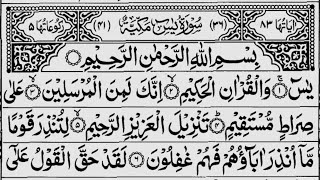 اٰیاتها ٨٣ (٣٦) سُوْرَةُ يٰسٓ مَكِّيَّةٌ (٤١) رکوعاتها ٥
بِسْمِ اللهِ الرَّحْمٰنِ الرَّحِيْمِ
يٰسٓ ۝١ وَالْقُرْاٰنِ الْحَكِيْمِ ۝٢ اِنَّكَ لَمِنَ الْمُرْسَلِيْنَ ۝٣ عَلٰى
صِرَاطٍ مُّسْتَقِيْمٍ ۝٤ تَنْزِيْلَ الْعَزِيْزِ الرَّحِيْمِ ۝٥ لِتُنْذِرَ قَوْمًا
مَّآ اُنْذِرَ اٰبَآؤُهُمْ فَهُمْ غٰفِلُوْنَ ۝٦ لَقَدْ حَقَّ الْقَوْلُ عَلٰٓى